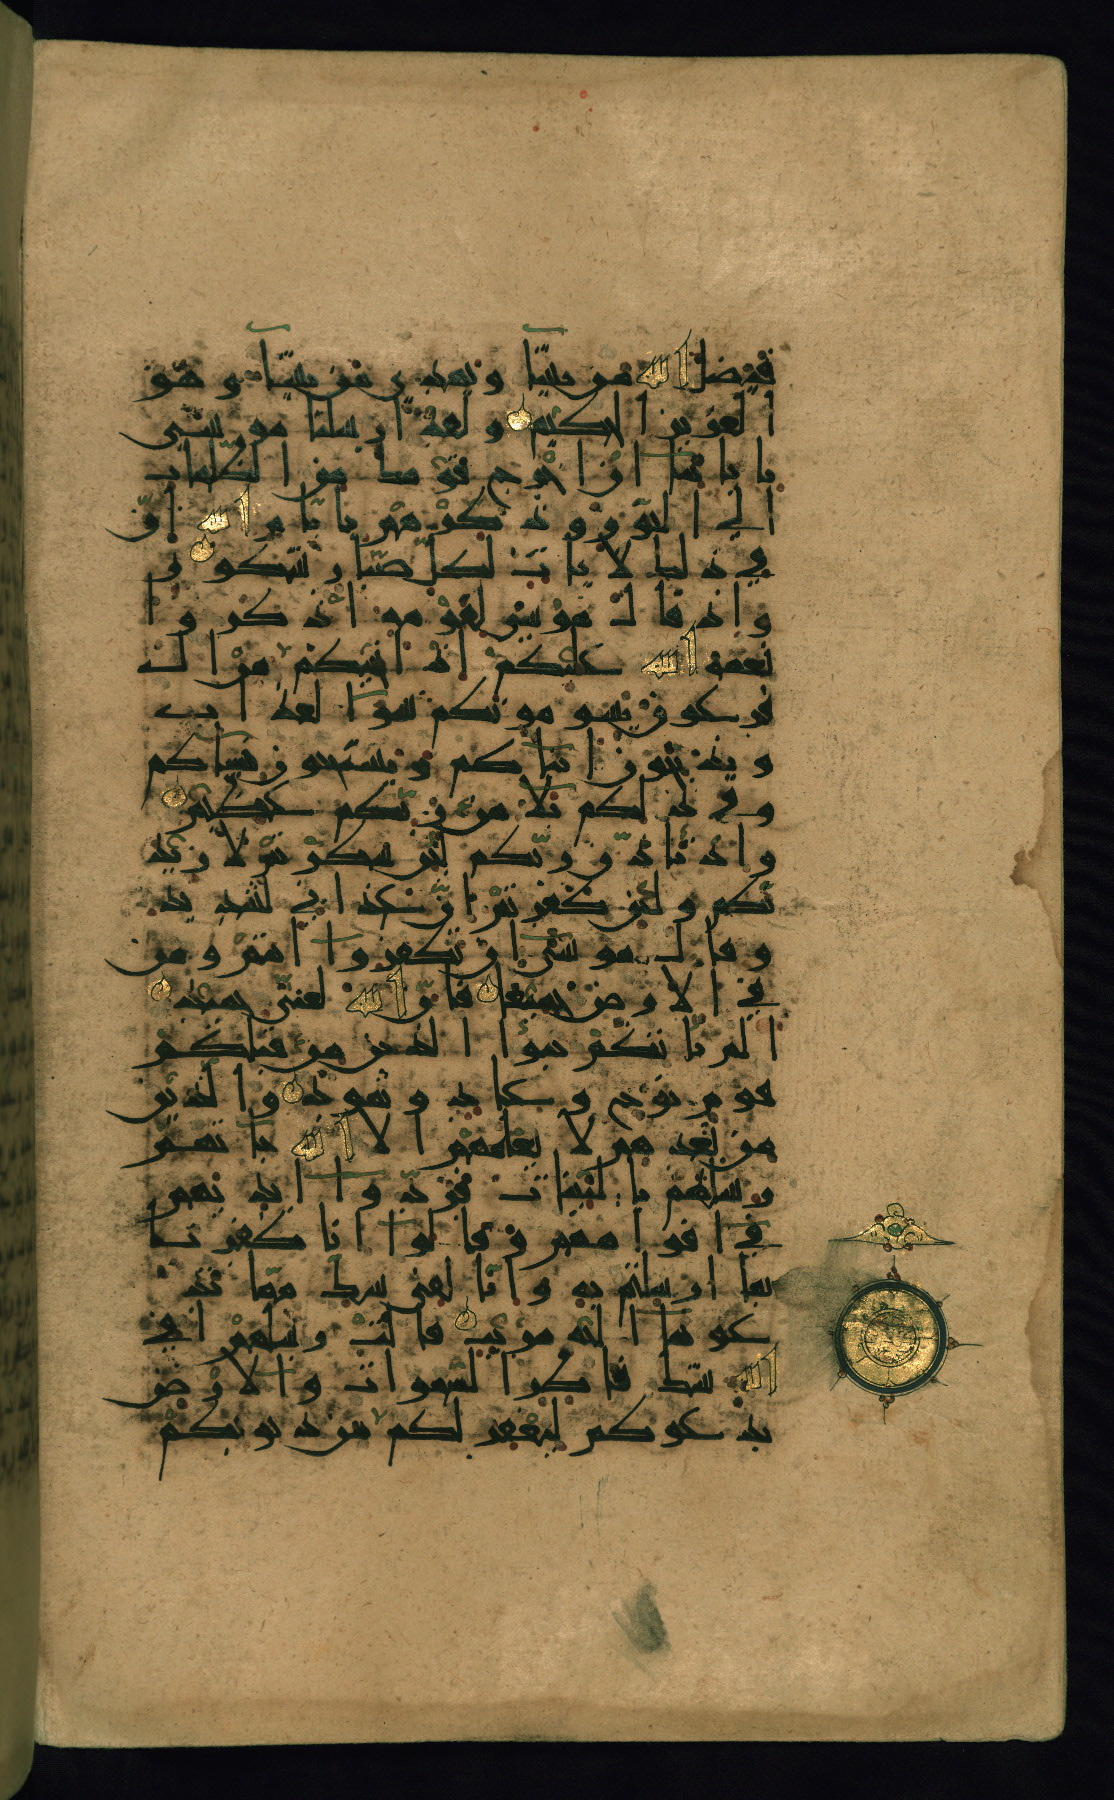 فيضل الله من يشا ويهدي من يشا وهو
العزيز الحكيم ولقد ارسلنا موسى
باياتنا ان اخرج قومك من الظلمات
الى النور وذكرهم بايام الله ان
في ذلك لايات لكل صبار شكور
واذ قال موسى لقومه اذكروا
نعمة الله عليكم اذ انجيكم من ال
فرعون يسومونكم سوء العذاب
ويذبحون ابناكم ويستحيون نساكم
وفي ذلكم بلا من ربكم عظيم
واذ تاذن ربكم لئن شكرتم لازيد
نكم ولئن كفرتم ان عذابي لشديد
وقال موسى ان تكفروا انتم ومن
في الارض جميعا فان الله لغني حميد
الم ياتكم نبؤا الذين من قبلكم
قوم نوح وعاد وثمود والذين
من بعدهم لا يعلمهم الا الله جاتهم
رسلهم بالبينات فردوا ايديهم
في افواههم وقالوا انا كفرنا
بما ارسلتم به وانا لفي شك مما تد
عوننا اليه مريب قالت رسلهم افي
الله شك فاطر السموات والارض
يدعوكم ليغفر لكم من ذنوبكم